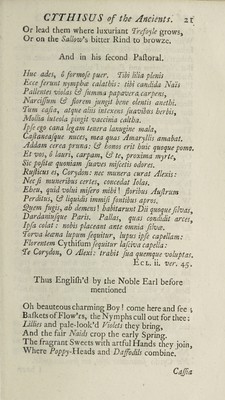 CYTHISUS of the Ancients. 21
Or lead them where luxuriant Trefoyle grows,
Or on the Sallow's bitter Rind to browze.
And in his second Pastoral.
Huc ades, ô formose puer. Tibi lilia plenis
Ecce ferunt nymphæ calathis: tibi candida Naïs
Pallentes violas & summa papavera carpens,
Narcissum & florem jungit bene olentis anethi.
Tum casia, atque aliis intexens suavibus herbis,
Mollia luteola pingit vaccinia caltha.
Ipse ego cana legam tenera lanugine mala,
Castaneasque nuces, mea quas Amaryllis amabat.
Addam cerea pruna: & honos erit huic quoque pomo.
Et vos, ô lauri, carpam, & te, proxima myrte,
Sic positæ quoniam suaves miscetis odores.
Rusticus es, Corydon: nec munera curat Alexis:
Nec si muneribus certes, concedat Iolas.
Eheu, quid volui misero mihi! floribus Austrum
Perditus, & liquidis immisi fontibus apros.
Quem fugis, ab demens! habitarunt Dii quoque silvas,
Dardaniusque Paris. Pallas, quas condidit arces,
Ipsa colat: nobis placeant ante omnia silvæ.
Torva leæna lupum sequitur, lupus ipse capellam:
Florentem Cythisum sequitur lasciva capella:
Te Corydon, O Alexi: trahit sua quemque voluptas.
ECL. ii. ver. 45.
Thus English'd by the Noble Earl before
mentioned
Oh beauteous charming Boy! come here and see;
Baskets of Flow'rs, the Nymphs cull out for thee:
Lillies and pale-look'd Violets they bring,
And the fair Naids crop the early Spring.
The fragrant Sweets with artful Hands they join,
Where Poppy-Heads and Daffodils combine.
Cassia